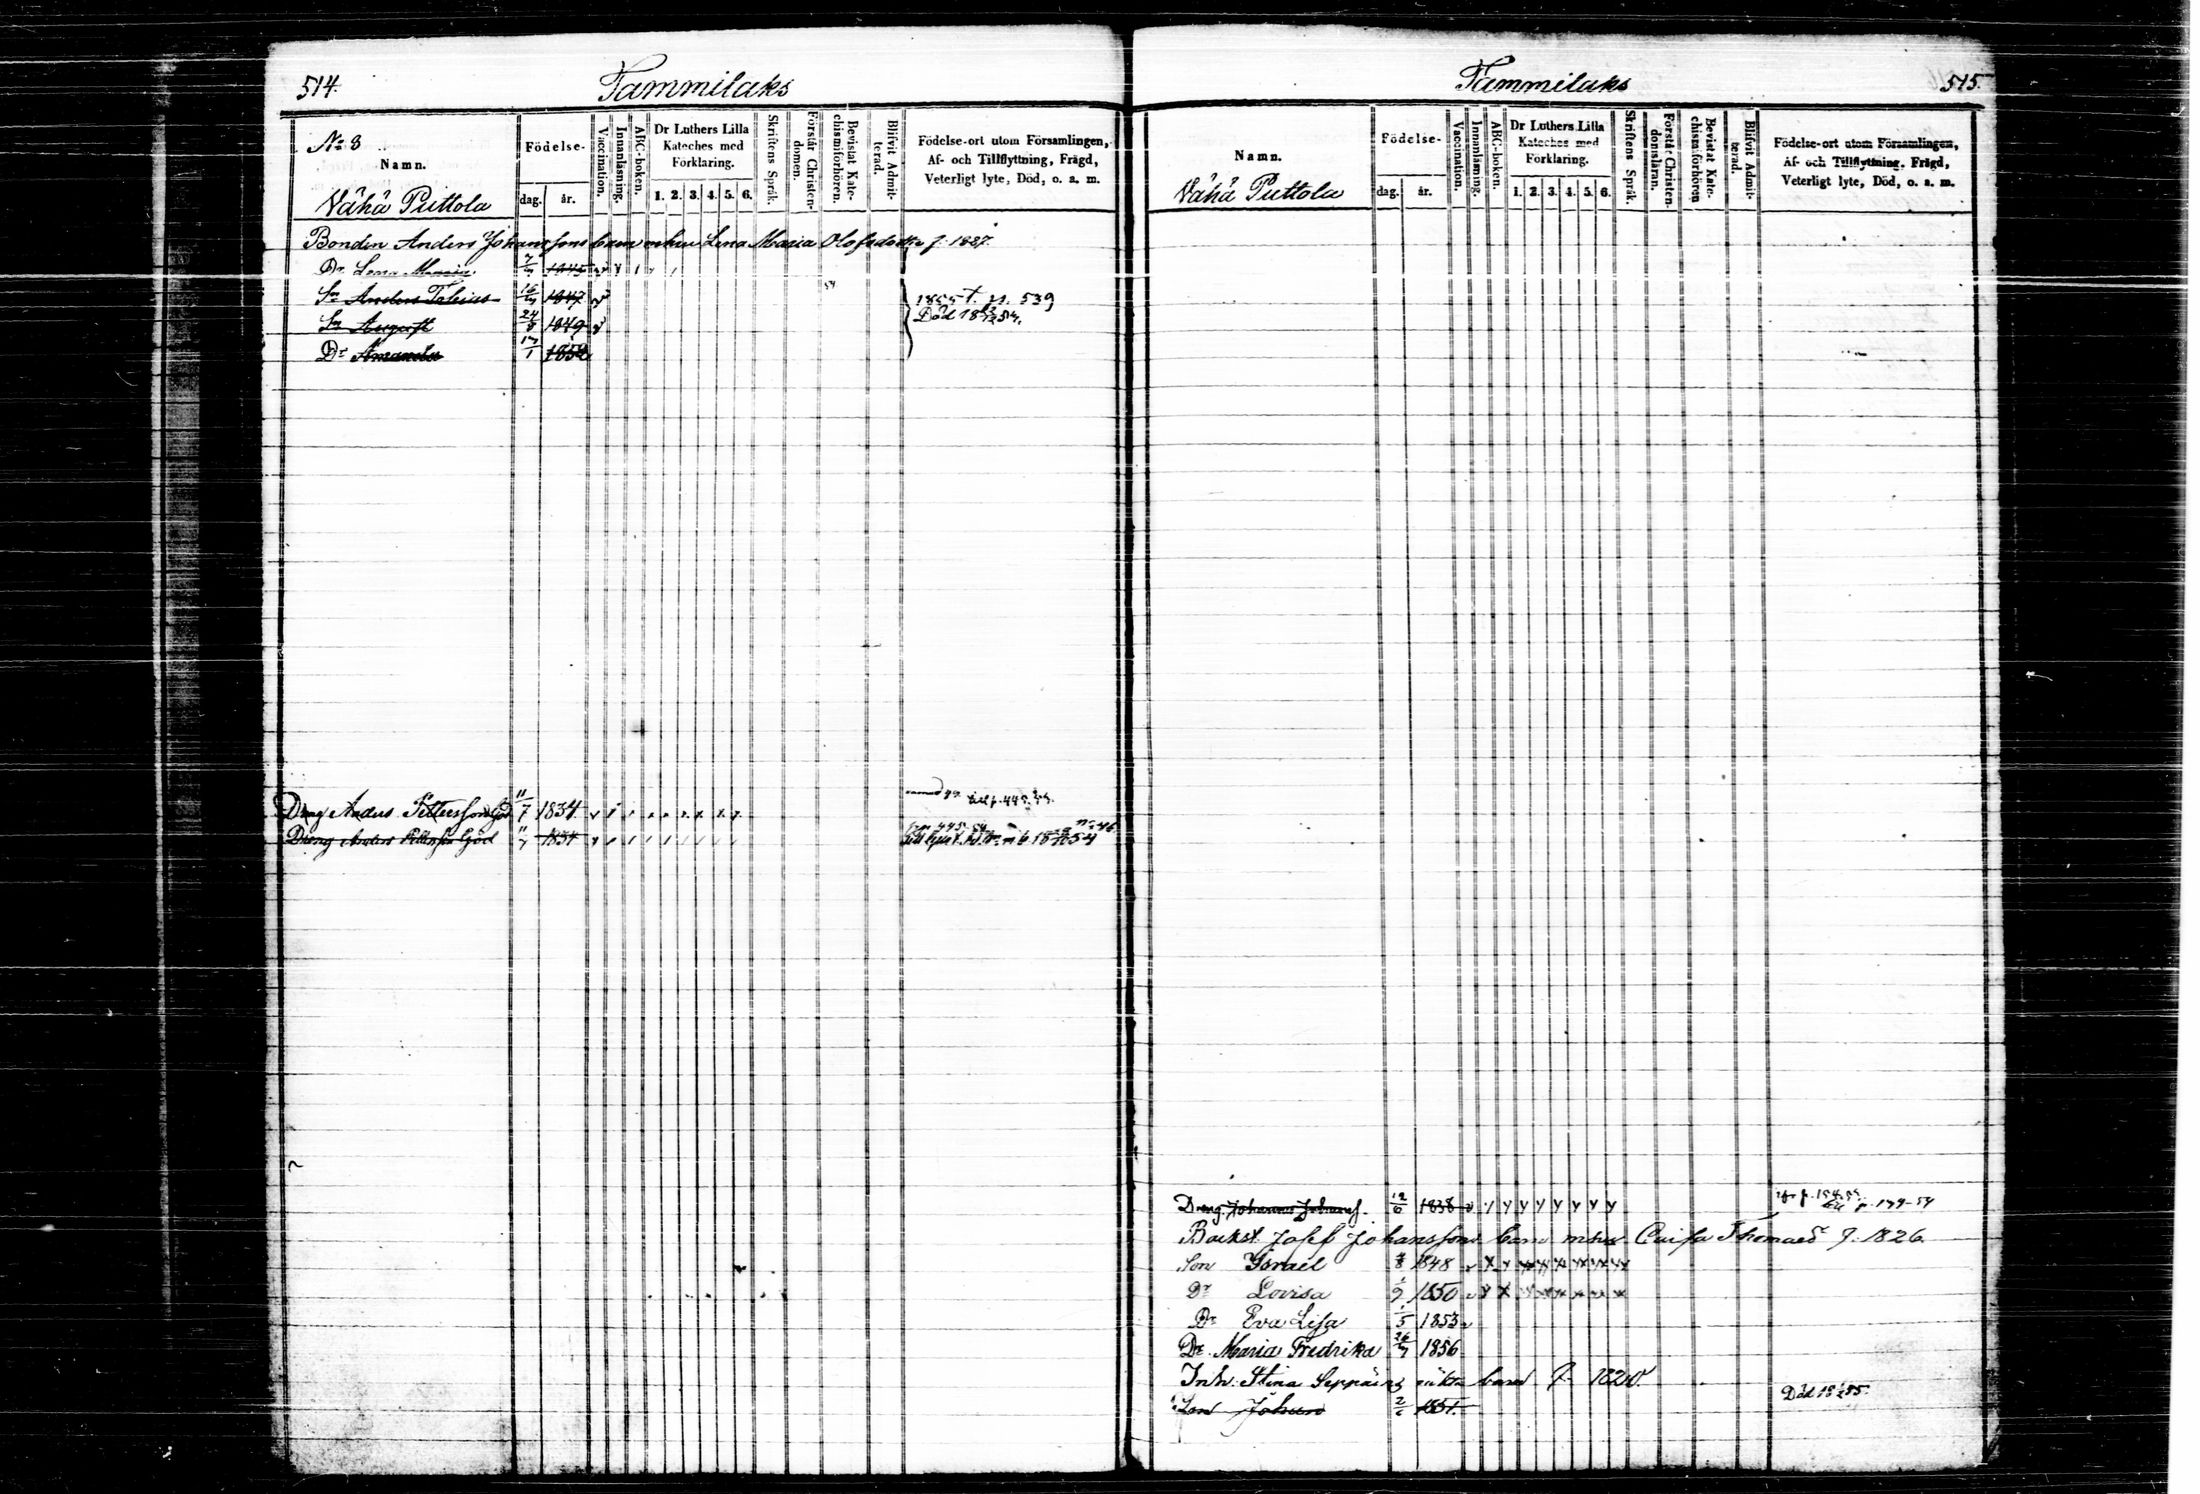 514.
Tammilaks
No 8
Namn.
Födelse-
dag.
år.
Vaccination.
Innanläsning.
ABC-boken.
Dr Luthers Lilla
Kateches med
Förklaring.
1. 2. 3. 4. 5. 6.
Skriftens Språk.
Förstår Christen-
domen.
Bevistat Kate-
chismiförhören.
Blifvit Admit-
terad.
Födelse-ort utom Församlingen,
Af- och Tillflyttning, Frägd,
Veterligt lyte, Död, o. a. m.
Vähä Puttola
Bonden Anders Johanssons barn mhu Lena Maria Olofsdotter f. 1827.
Dr Lena Maria 1845
Sn Anders Tobias 16 1847
54
1855 f. p. 539
Sn August 24 1849
Död 18 54.
Dr Amanda 17/1 1852
Dräng Anders Pettersson Göd 11/7 1834
till p. 445
Dräng Anders Pettersson Göd 11/7 1834
515.
Tammilaks
Namn.
Födelse-
dag.
år.
Vaccination.
Innanläsning.
ABC-boken.
Dr Luthers Lilla
Kateches med
Förklaring.
1. 2. 3. 4. 5. 6.
Skriftens Språk.
Förstår Christen-
domsläran.
Bevistat Kate-
chismiförhören
Blifvit Admit-
terad.
Födelse-ort utom Församlingen,
Af- och Tillflyttning, Frägd,
Veterligt lyte, Död, o. a. m.
Vähä Puttola
Dräng Johannes Johanss. 12/6 1838
p. 179-54
Backst. Josef Johanssons barn mhu Caisa Thomasd f. 1826.
Son Israel 1848
Dr Lovisa 1/9 1850
Dr Eva Lisa 1/5 1853
Dr Maria Fredrika 26/7 1856
Inh: Stina Seppäins oäkta barn f. 1820.
Son Johan 2 1851.
Död 18 55.